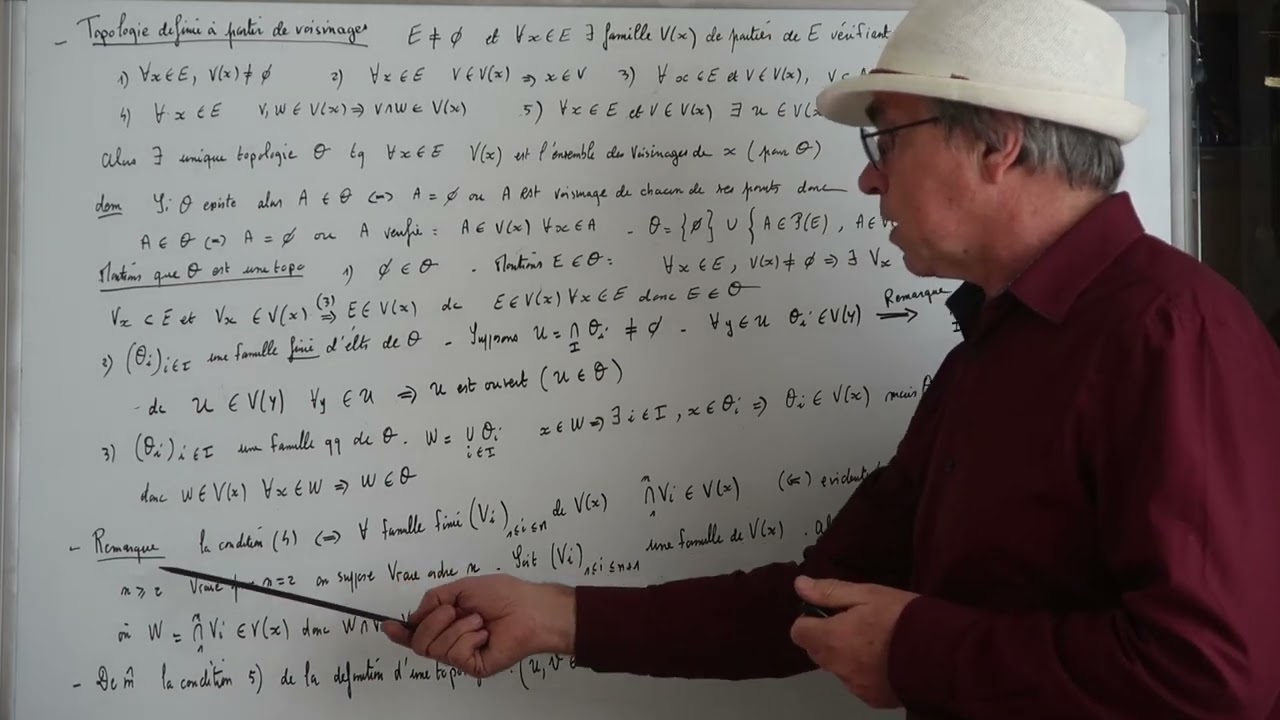 - Topologie definie à partir de voisinages E ≠ ∅ et ∀x∈E ∃ famille V(x) de parties de E vérifiant
1) ∀x∈E, V(x) ≠ ∅ 2) ∀x∈E V∈V(x) ⇒ x∈V 3) ∀x∈E et V∈V(x), V⊂
4) ∀x∈E V,W∈V(x) ⇒ V∩W∈V(x) 5) ∀x∈E et V∈V(x) ∃ U∈V(x
Alors ∃ unique topologie θ tq ∀x∈E V(x) est l'ensemble des voisinages de x (pour θ)
dem Si θ existe alors A∈θ ⇔ A=∅ ou A est voisinage de chacun de ses points donc
A∈θ ⇔ A=∅ ou A verifie : A∈V(x) ∀x∈A - θ = {∅} ∪ {A∈P(E), A∈V
Montrons que θ est une topo 1) ∅∈θ . Montrons E∈θ : ∀x∈E, V(x) ≠ ∅ ⇒ ∃ Vx
Vx ⊂ E et Vx ∈ V(x) (3)⇒ E∈V(x) dc E∈V(x) ∀x∈E donc E∈θ
2) (θi)i∈I une famille finie d'élts de θ - Supposons U = ∩I θi ≠ ∅ - ∀y∈U θi∈V(y) Remarque ⟶
- dc U∈V(y) ∀y∈U ⇒ U est ouvert (U∈θ)
3) (θi)i∈I une famille qq de θ. W = ∪i∈I θi x∈W ⇒ ∃ i∈I, x∈θi ⇒ θi∈V(x) mais θ
donc W∈V(x) ∀x∈W ⇒ W∈θ
- Remarque la condition (4) ⇔ ∀ famille finie (Vi)1≤i≤n de V(x) ∩₁ⁿ Vi ∈ V(x) (⇐) evident
n ≥ 2 Vraie n=2 on suppose Vraie ordre n - Soit (Vi)1≤i≤n+1 une famille de V(x) . al
où W = ∩₁ⁿ Vi ∈ V(x) donc W∩V
- De m̂ la condition 5) de la definition d'une . (U, V ∈